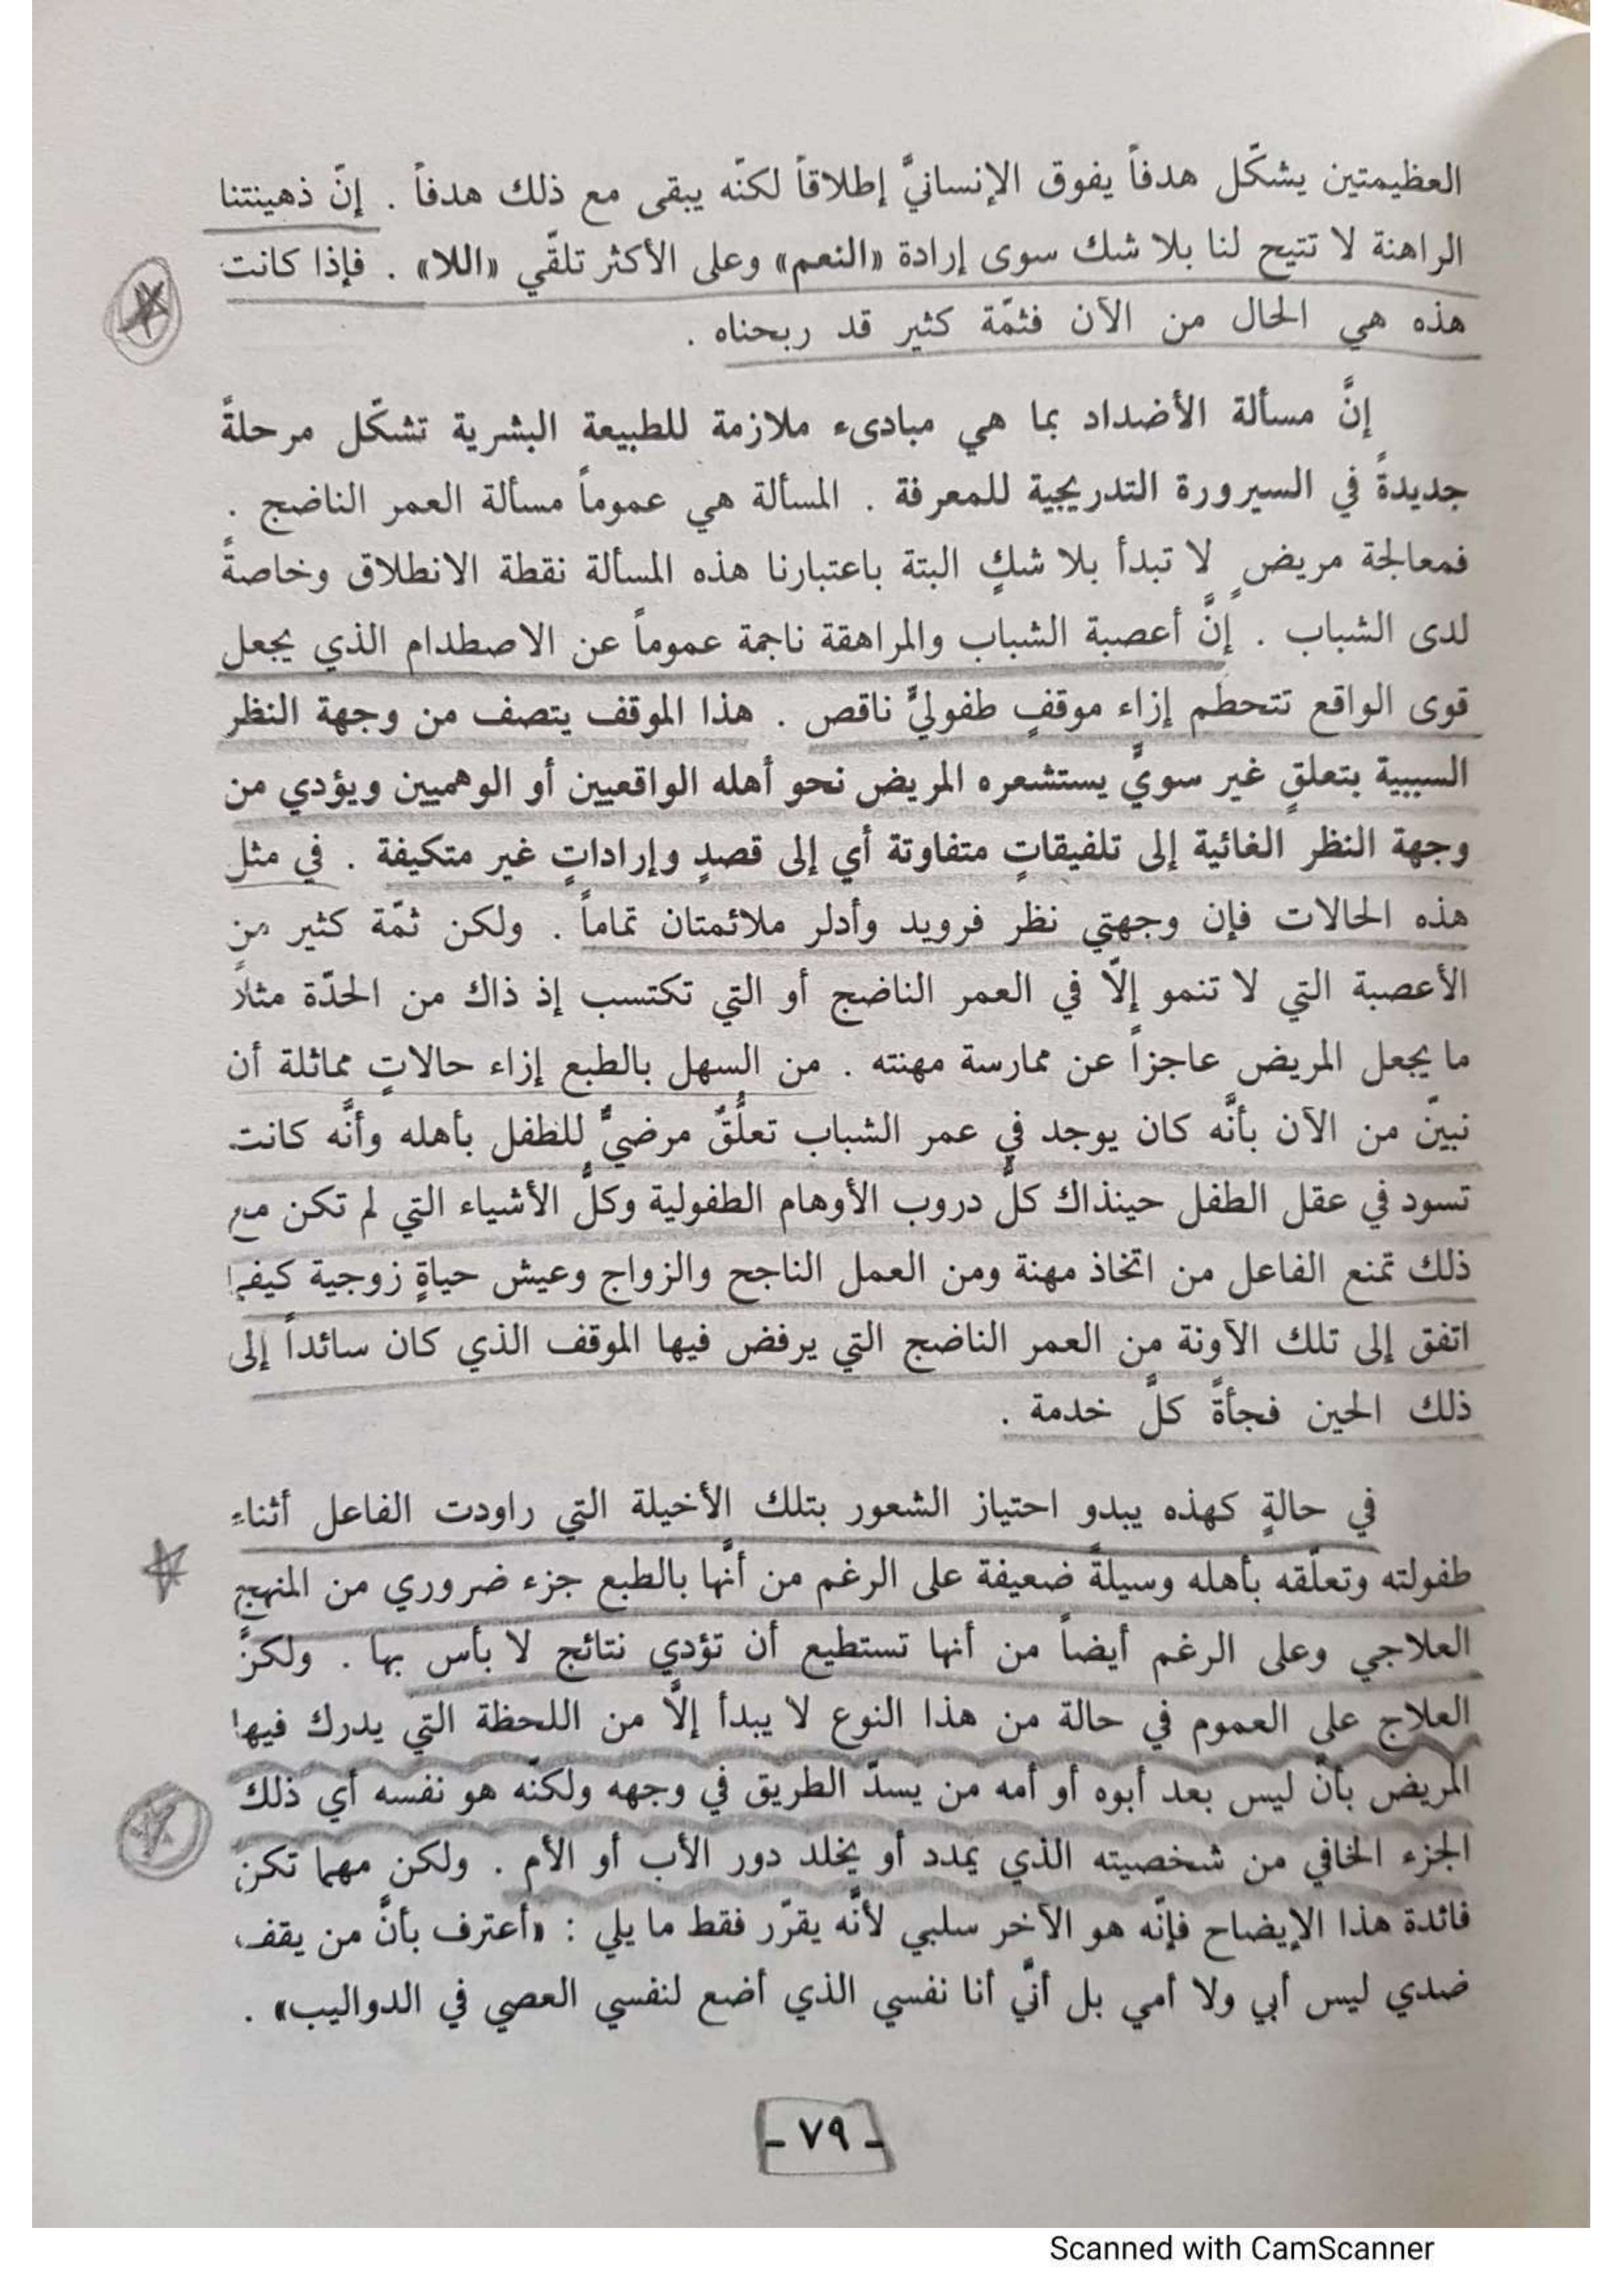 العظيمتين يشكّل هدفاً يفوق الإنسانيَّ إطلاقاً لكنّه يبقى مع ذلك هدفاً . إنّ ذهينتنا
الراهنة لا تتيح لنا بلا شك سوى إرادة «النعم» وعلى الأكثر تلقّي «اللا» . فإذا كانت
هذه هي الحال من الآن فثمّة كثير قد ربحناه .
إنَّ مسألة الأضداد بما هي مبادىء ملازمة للطبيعة البشرية تشكّل مرحلةً
جديدةً في السيرورة التدريجية للمعرفة . المسألة هي عموماً مسألة العمر الناضج .
فمعالجة مريضٍ لا تبدأ بلا شكٍ البتة باعتبارنا هذه المسألة نقطة الانطلاق وخاصةً
لدى الشباب . إنَّ أعصبة الشباب والمراهقة ناجمة عموماً عن الاصطدام الذي يجعل
قوى الواقع تتحطم إزاء موقفٍ طفوليٍّ ناقص . هذا الموقف يتصف من وجهة النظر
السببية بتعلقٍ غير سويٍّ يستشعره المريض نحو أهله الواقعيين أو الوهميين ويؤدي من
وجهة النظر الغائية إلى تلفيقاتٍ متفاوتة أي إلى قصدٍ وإراداتٍ غير متكيفة . في مثل
هذه الحالات فإن وجهتي نظر فرويد وأدلر ملائمتان تماماً . ولكن ثمّة كثير من
الأعصبة التي لا تنمو إلّا في العمر الناضج أو التي تكتسب إذ ذاك من الحدّة مثلاً
ما يجعل المريض عاجزاً عن ممارسة مهنته . من السهل بالطبع إزاء حالاتٍ مماثلة أن
نبيّن من الآن بأنَّه كان يوجد في عمر الشباب تعلُّقٌ مرضيٌّ للطفل بأهله وأنَّه كانت
تسود في عقل الطفل حينذاك كلُّ دروب الأوهام الطفولية وكلُّ الأشياء التي لم تكن مع
ذلك تمنع الفاعل من اتخاذ مهنة ومن العمل الناجح والزواج وعيش حياةٍ زوجية كيفما
اتفق إلى تلك الآونة من العمر الناضج التي يرفض فيها الموقف الذي كان سائداً إلى
ذلك الحين فجأةً كلَّ خدمة .
في حالةٍ كهذه يبدو احتياز الشعور بتلك الأخيلة التي راودت الفاعل أثناء
طفولته وتعلّقه بأهله وسيلةً ضعيفة على الرغم من أنَّها بالطبع جزء ضروري من المنهج
العلاجي وعلى الرغم أيضاً من أنها تستطيع أن تؤدي نتائج لا بأس بها . ولكنَّ
العلاج على العموم في حالة من هذا النوع لا يبدأ إلَّا من اللحظة التي يدرك فيها
المريض بأنّ ليس بعد أبوه أو أمه من يسدّ الطريق في وجهه ولكنّه هو نفسه أي ذلك
الجزء الخافي من شخصيته الذي يمدد أو يخلد دور الأب أو الأم . ولكن مهما تكن
فائدة هذا الإيضاح فإنّه هو الآخر سلبي لأنَّه يقرّر فقط ما يلي : «أعترف بأنَّ من يقف
ضدي ليس أبي ولا أمي بل أنّي أنا نفسي الذي أضع لنفسي العصي في الدواليب» .
- ٧٩ -
Scanned with CamScanner